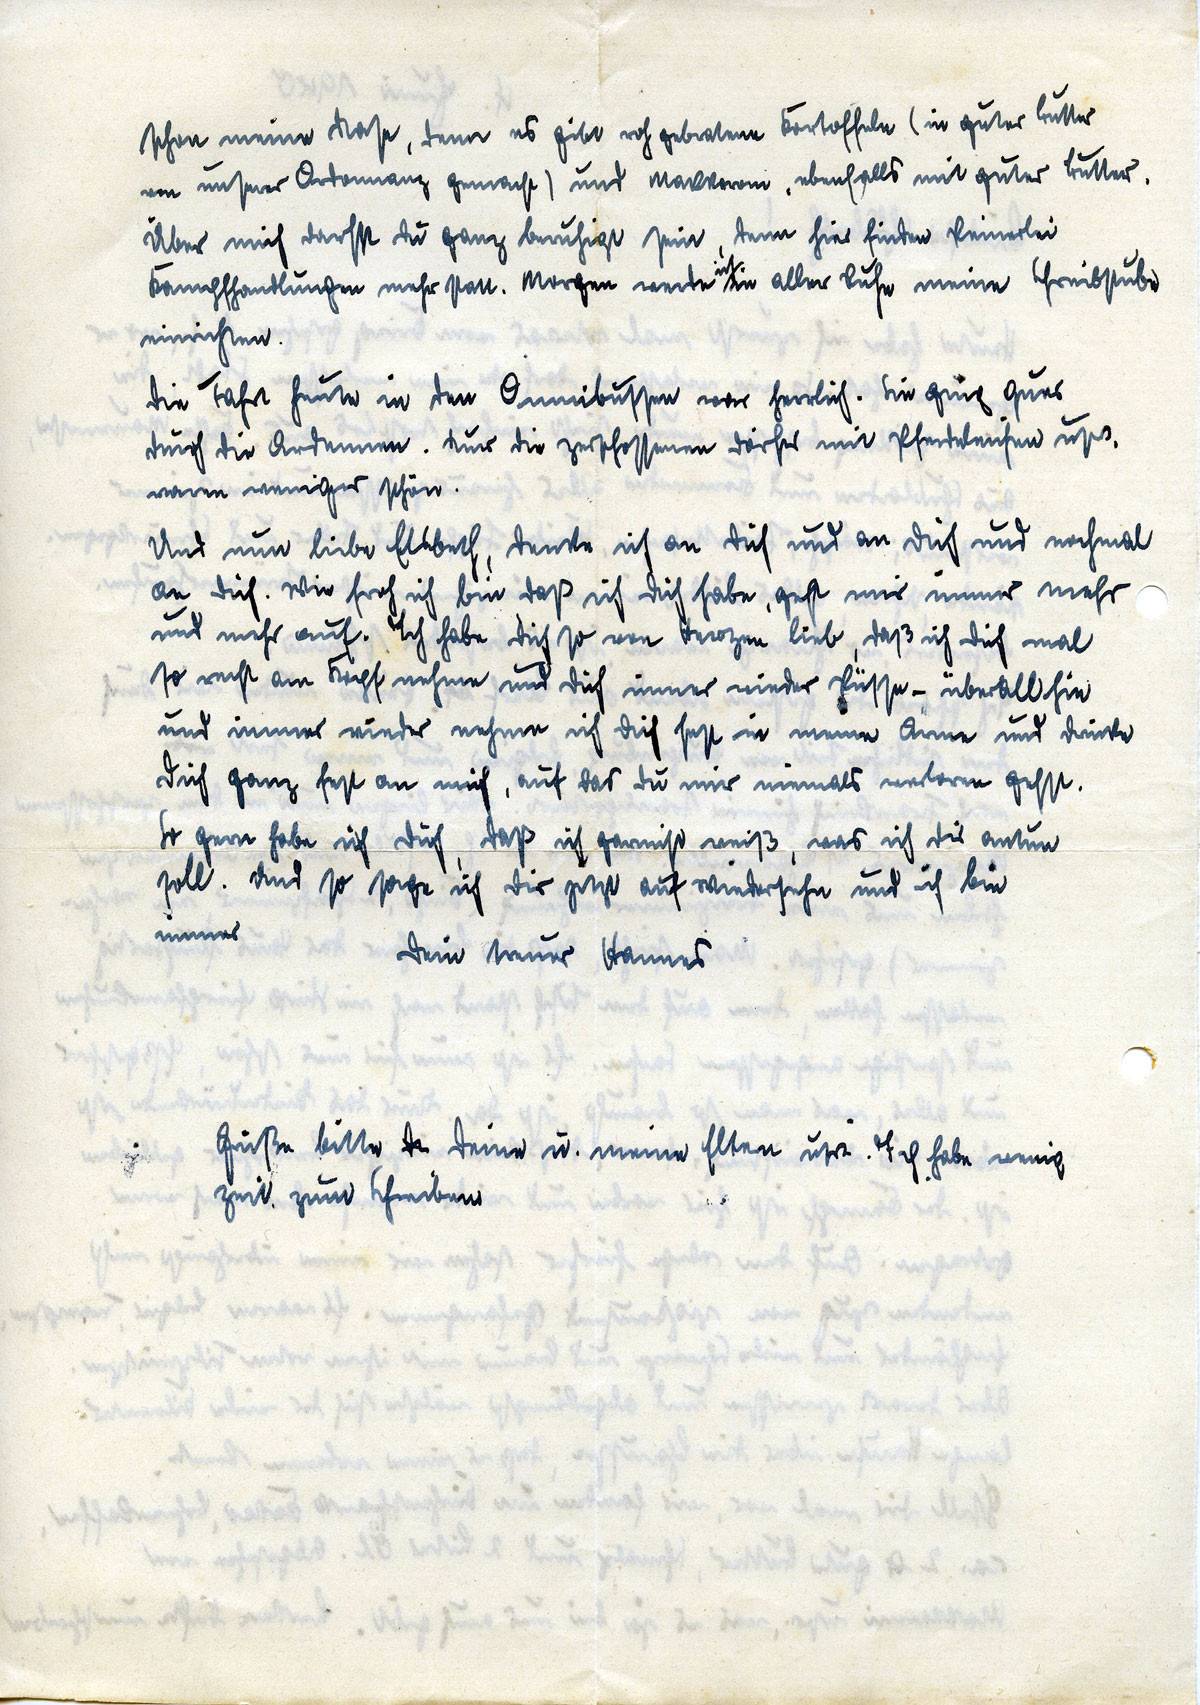 schon meine Nase, denn es gibt roh gebratene Kartoffeln (in guter Butter
von unserer Ordonnanz gemacht) und Makkaroni, ebenfalls mit guter Butter.
Über mich darfst du ganz beruhigt sein, denn hier finden keinerlei
Kampfhandlungen mehr statt. Morgen werde ich in aller Ruhe meine Schreibstube
einrichten.
Die Fahrt heute in den Omnibussen war herrlich. Sie ging quer
durch die Ardennen. Nur die zerschossenen Dörfer mit Pferdeleichen usw.
waren weniger schön.
Und nun liebe Elsbeth, denke ich an Dich und an Dich und nochmal
an Dich. Wie froh ich bin daß ich Dich habe, geht mir immer mehr
und mehr auf. Ich habe Dich so von Herzen lieb, daß ich Dich mal
so recht am Kopf nehme und Dich immer wieder küsse - überall hin
und immer wieder nehme ich Dich fest in meine Arme und drücke
Dich ganz fest an mich, auf das du mir niemals verloren gehst.
So gern habe ich Dich, daß ich garnicht weiß, was ich dir antun
soll. Und so sage ich dir jetzt auf Wiedersehn und ich bin
immer
Dein treuer Hannes
Grüße bitte Deine u. meine Eltern usw. Ich habe wenig
Zeit zum Schreiben